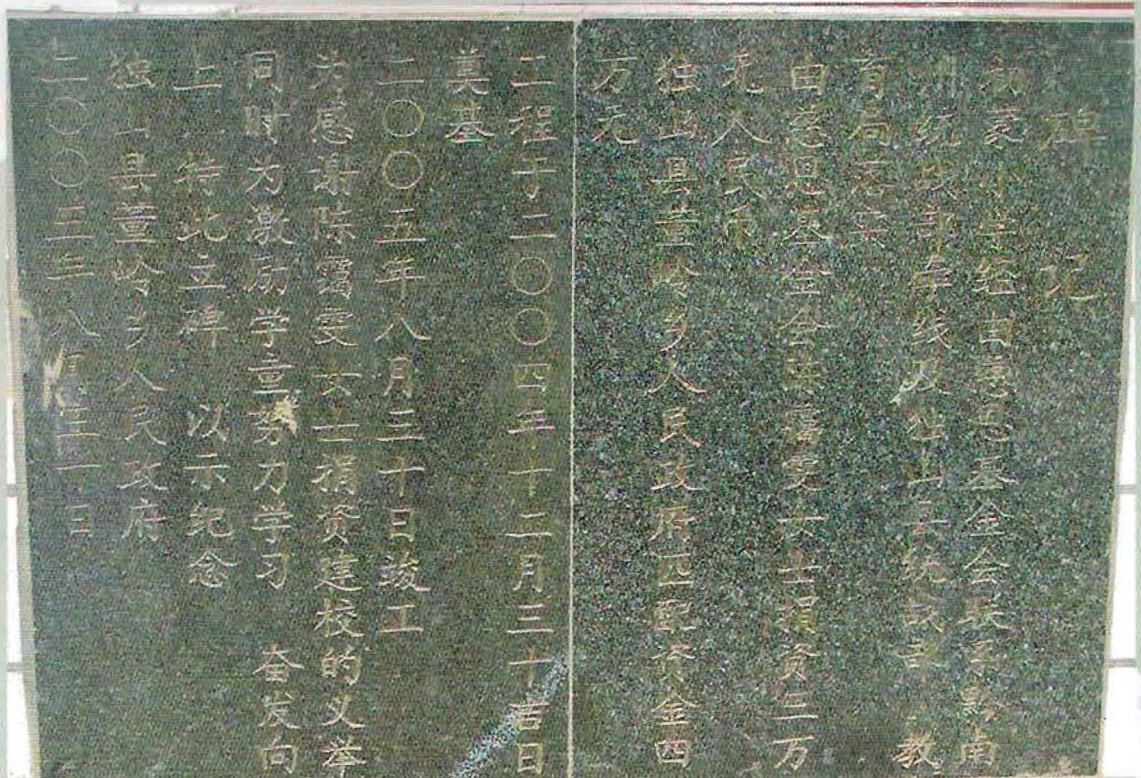 碑 记
蒙小学经由慈恩基金会联系黔南
州统战部牵线及独山县统战部 教
育局落实
由慈恩基金会陈霭雯女士捐资三万
元人民币
独山县董岭乡人民政府匹配资金四
万元
工程于二〇〇四年十二月三十日
奠基
二〇〇五年八月三十日竣工
为感谢陈霭雯女士捐资建校的义举
同时为激励学童努力学习 奋发向
上 特此立碑 以示纪念
独山县董岭乡人民政府
二〇〇三年八月三十日